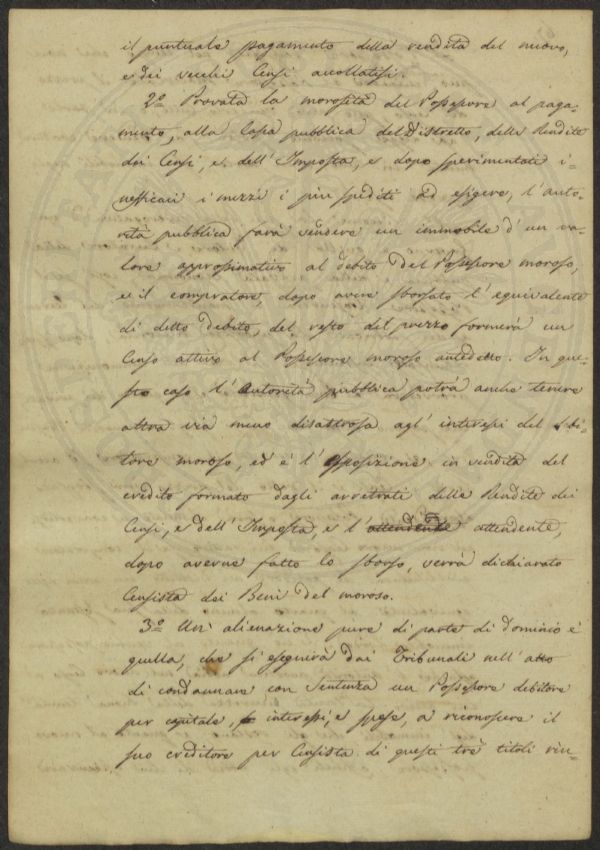 il puntuale pagamento della rendita del nuovo,
e dei vecchi Censi accollatisi.
2º Provata la morosità del Possessore al paga-
mento, alla Cassa pubblica del distretto, delle Rendite
dei Censi, e dell'Imposta, e dopo sperimentati i-
nefficaci i mezzi i più spediti ad esigere, l'auto-
rità pubblica farà vendere un immobile d'un va-
lore approssimativo al debito del Possessore moroso,
e il compratore, dopo avere sborsato l'equivalente
di detto debito, del resto del prezzo formerà un
Censo attivo al Possessore moroso antedetto. In que-
sto caso l'Autorità pubblica potrà anche tenere
altra via meno disastrosa agl'interessi del debi-
tore moroso, ed è l'esposizione in vendita del
credito formato dagli arretrati delle Rendite dei
Censi, e dell'Imposta, e l'attendente,
dopo averne fatto lo sborso, verrà dichiarato
Censista dei Beni del moroso.
3º Un'alienazione pure di parte di dominio è
quella, che si eseguirà dai Tribunali nell'atto
di condannare con Sentenza un Possessore debitore
per capitale, interessi, e spese, a riconoscere il
suo creditore per Censista di questi tre titoli riu-